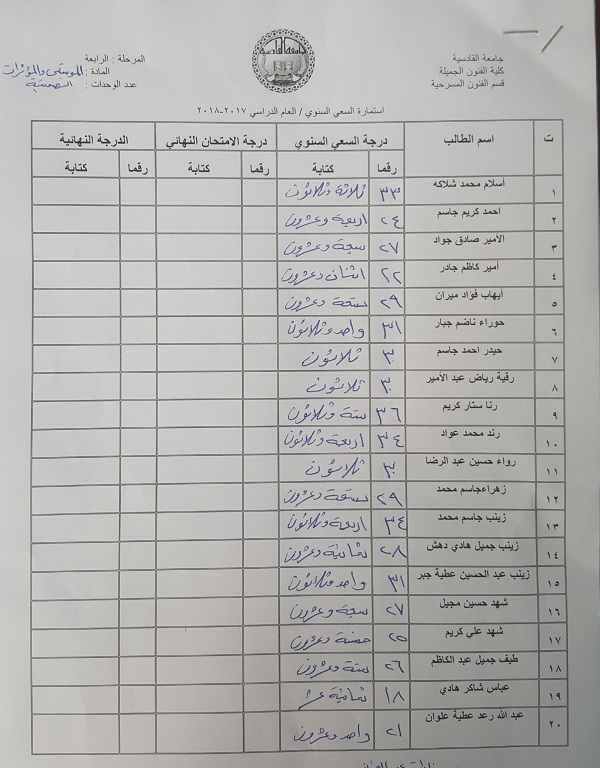 جامعة القادسية
كلية الفنون الجميلة
قسم الفنون المسرحية
المرحلة : الرابعة
المادة : الموسيقى والمؤثرات
عدد الوحدات :
استمارة السعي السنوي / العام الدراسي ٢٠١٧-٢٠١٨
ت اسم الطالب درجة السعي السنوي درجة الامتحان النهائي الدرجة النهائية
رقما كتابة رقما كتابة رقما كتابة
١ أسلام محمد شلاكه ٣٣ ثلاثة وثلاثون
٢ احمد كريم جاسم ٢٤ اربعة وعشرون
٣ الأمير صادق جواد ٢٧ سبعة وعشرون
٤ أمير كاظم جادر ٢٢ اثنان وعشرون
٥ أيهاب فؤاد ميران ٢٩ تسعة وعشرون
٦ حوراء ناضم جبار ٣١ واحد وثلاثون
٧ حيدر احمد جاسم ٣٠ ثلاثون
٨ رقية رياض عبد الأمير ٣٠ ثلاثون
٩ رنا ستار كريم ٣٦ ستة وثلاثون
١٠ رند محمد عواد ٣٤ اربعة وثلاثون
١١ رواء حسين عبد الرضا ٣٠ ثلاثون
١٢ زهراءجاسم محمد ٢٩ تسعة وعشرون
١٣ زينب جاسم محمد ٣٤ اربعة وثلاثون
١٤ زينب جميل هادي دهش ٢٨ ثمانية وعشرون
١٥ زينب عبد الحسين عطية جبر ٣١ واحد وثلاثون
١٦ شهد حسين مجيل ٢٧ سبعة وعشرون
١٧ شهد علي كريم ٢٥ خمسة وعشرون
١٨ طيف جميل عبد الكاظم ٢٦ ستة وعشرون
١٩ عباس شاكر هادي ١٨ ثمانية عشر
٢٠ عبد الله رعد عطية علوان ٢١ واحد وعشرون